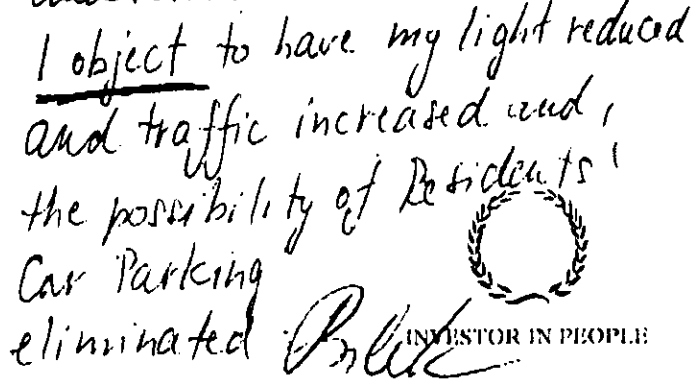 I object to have my light reduced
and traffic increased and,
the possibility of Residents'
Car Parking
eliminated
INVESTOR IN PEOPLE